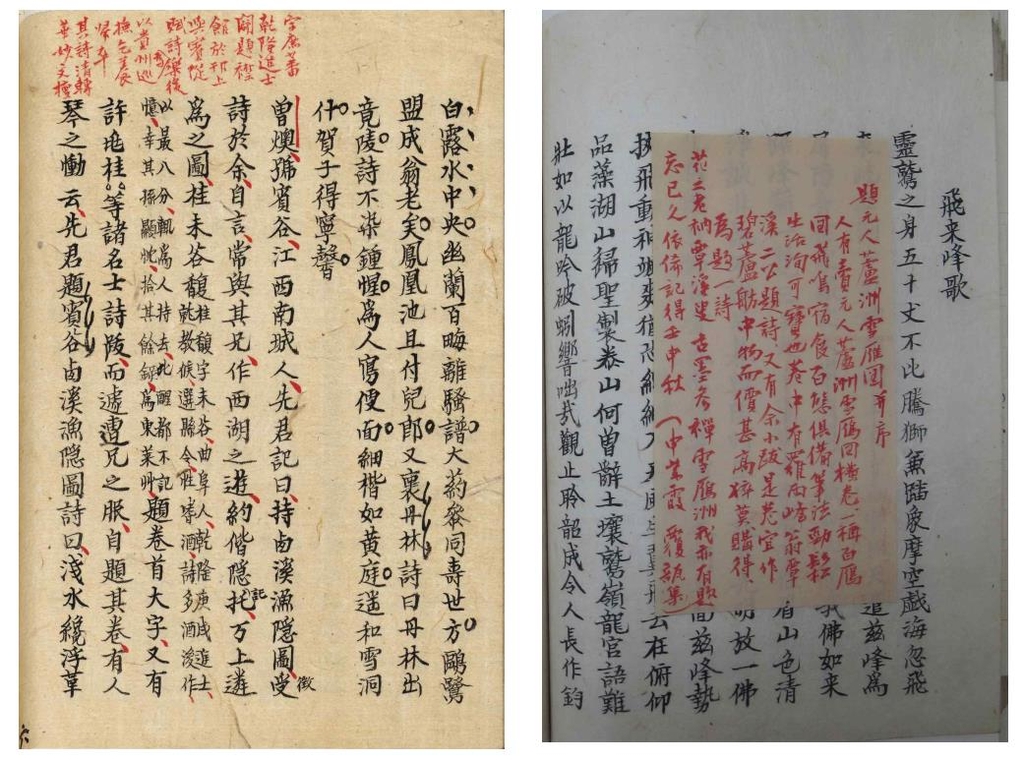 字庶蕃
乾隆進士
開題襟
館於邗上
與賓從
賦詩
以貴州巡
撫乞養
歸卒
其詩清轉
華妙
白露水中央幽蘭百畮離騷譜大葯發同壽世方鷗鷺
盟成翁老矣鳳凰池且付兒郎又襄丹林詩曰丹林出
竟陵詩不染鍾惺爲人寫便面細楷如黃庭遄和雪洞
什賀子得寧馨
曾燠號賓谷江西南城人先君記曰持西溪漁隱圖徵
詩於余自言常與其兄作西湖之遊約偕隱托万上遴
爲之圖桂未谷馥桂馥字未谷曲阜人乾隆庚戌進士
乾教候選縣令性嗜酒詩多酒後作
以最八分輒爲人持去醒都不記
憶幸其孫顯忱拾其餘爲東萊艸題卷首大字又有
許兆桂等諸名士詩陂而遽遭兄之服自題其卷有人
琴之慟云先君題賓谷西溪漁隱圖詩曰淺水纔浮葦
飛来峰歌
靈鷲之身五十丈不比騰獅魚臨象摩空戲海忽飛
題元人蘆洲雪雁圖并序
人有賣元人蘆洲雪鴈圖橫卷一稱百鴈
回飛鳴宿食百態俱備筆法勁鬆
生活洵可寶也卷中有羅兩峰翁覃
溪二公題詩又有余小跋是卷宜作
碧蘆舫中物而價甚高猝莫購得
爲題一詩
花之老衲覃溪叟古墨參禪雪鴈洲我亦有題
忘已久依俙記得壬申秋
追茲峰爲
我佛如来
看山色清
明放一佛
面茲峰勢
云在俯仰
品藻湖山歸聖製卷山何曾辭土壤鷲嶺龍宮語難
壯如以龍吟破蚓響咄哉觀止聆韶成令人長作鈞